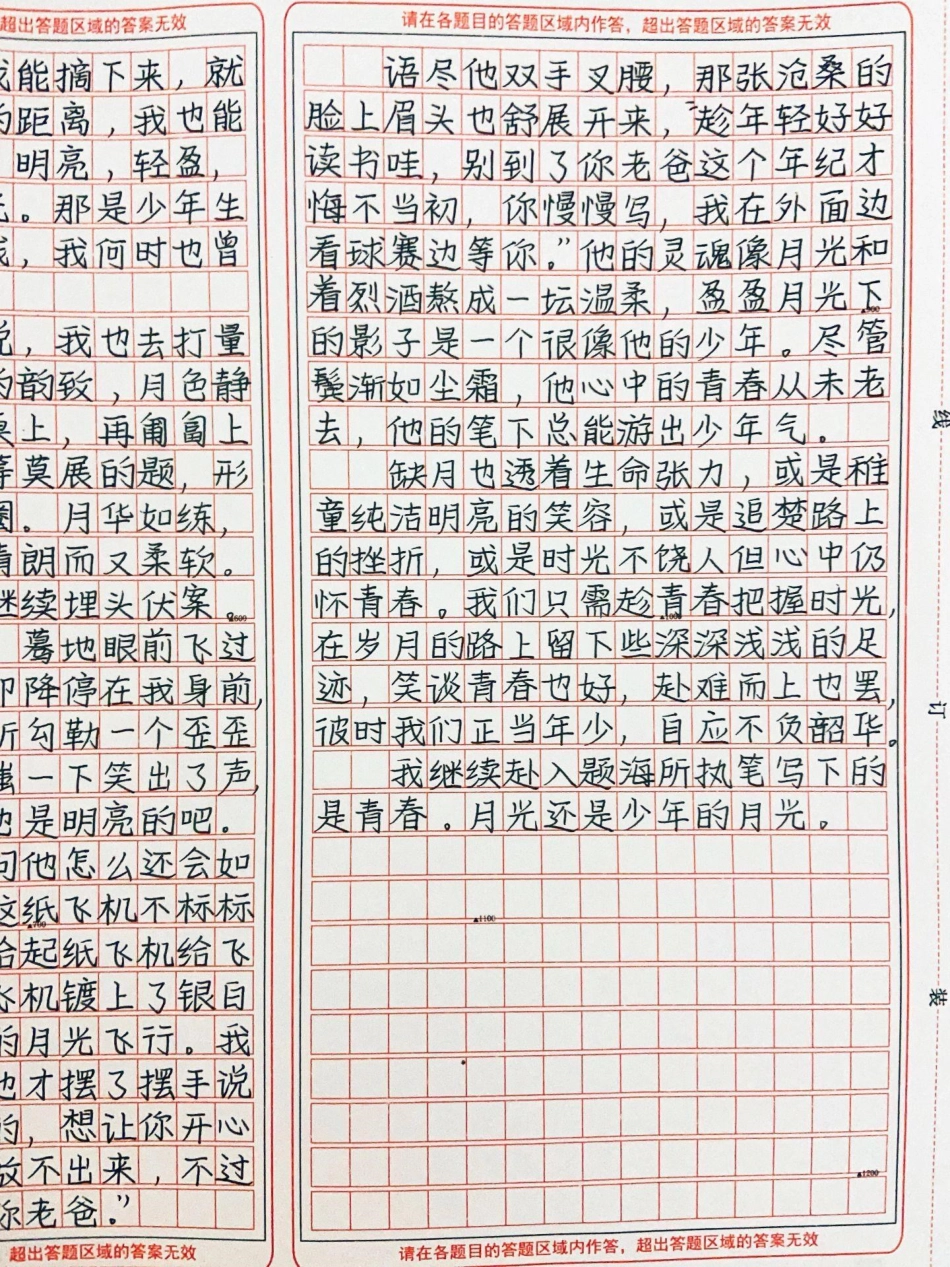 超出答题区域的答案无效
能摘下来，就
的距离，我也能
明亮，轻盈，
。那是少年生
，我何时也曾
，我也去打量
的韵致，月色静
桌上，再阖阖上
筹莫展的题，形
圈。月华如练，
清朗而又柔软。
继续埋头伏案。
▲600
蓦地眼前飞过
即降停在我身前，
所勾勒一个歪歪
嗤一下笑出了声，
也是明亮的吧。
问他怎么还会如
这纸飞机不标标
▲700
拾起纸飞机给飞
飞机镀上了银白
的月光飞行。我
他才摆了摆手说
的，想让你开心
放不出来，不过
你老爸。”
超出答题区域的答案无效
请在各题目的答题区域内作答，超出答题区域的答案无效
语尽他双手叉腰，那张沧桑的
脸上眉头也舒展开来，“趁年轻好好
读书哇，别到了你老爸这个年纪才
悔不当初，你慢慢写，我在外面边
看球赛边等你。”他的灵魂像月光和
着烈酒熬成一坛温柔，盈盈月光下
▲900
的影子是一个很像他的少年。尽管
鬓渐如尘霜，他心中的青春从未老
去，他的笔下总能游出少年气。
缺月也透着生命张力，或是稚
童纯洁明亮的笑容，或是追楚路上
的挫折，或是时光不饶人但心中仍
怀青春。我们只需趁青春把握时光，
▲1000
在岁月的路上留下些深深浅浅的足
迹，笑谈青春也好，赴难而上也罢，
彼时我们正当年少，自应不负韶华。
我继续赴入题海所执笔写下的
是青春。月光还是少年的月光。
▲1100
▲1200
请在各题目的答题区域内作答，超出答题区域的答案无效
线
订
装